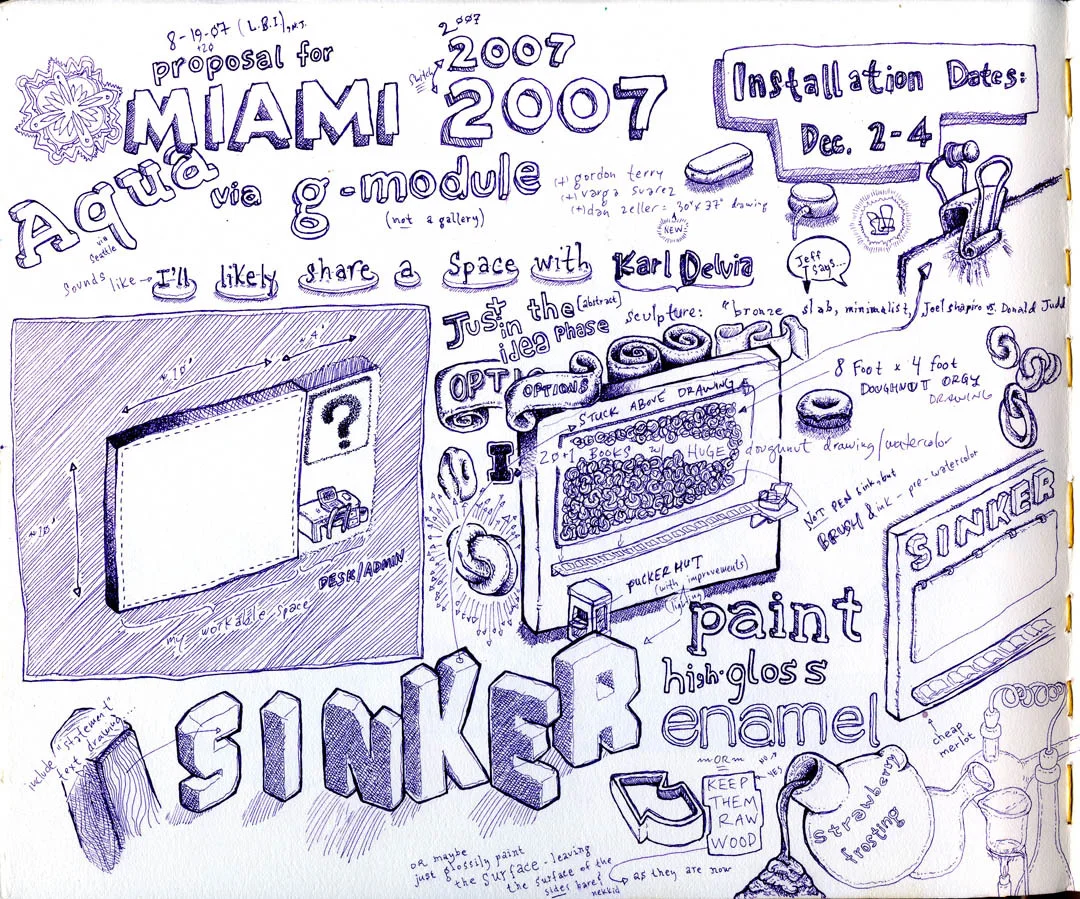 8-19-07 (L.B.I), N.J.
+20
proposal for
MIAMI 2007
2007
2007
Aqua
via
Seattle
via g-module
(not a gallery)
(+) gordon terry
(+) varga suarez
(+) dan zeller = 30"x 37" drawing
NEW
Installation Dates:
Dec. 2-4
Sounds like → I'll likely share a Space with Karl Delvia
Jeff
says...
Just in the [abstract]
idea phase
sculpture: "bronze slab, minimalist, Joel shapiro vs. Donald Judd
~ 4'
~ 10'
~ 10'
?
DESK/ADMIN
my workable space
OPTIO
OPTIONS
STUCK ABOVE DRAWING
20+1 BOOKS w/ HUGE doughnut drawing/watercolor
8 Foot x 4 foot
DOUGHNUT ORGY
DRAWING
1.
NOT PEN & ink, but
BRUSH & ink - pre-watercolor
PUCKER HUT
(with improvements)
(lighting)
SINKER
SINKER
paint
high-gloss
enamel
cheap
merlot
include "statement"
text drawing...
OR
NO
YES
KEEP
THEM
RAW
WOOD
strawberry
frosting
or maybe
just glossily paint
the surface - leaving
the surface of the
sides bare?
nekkid
as they are now